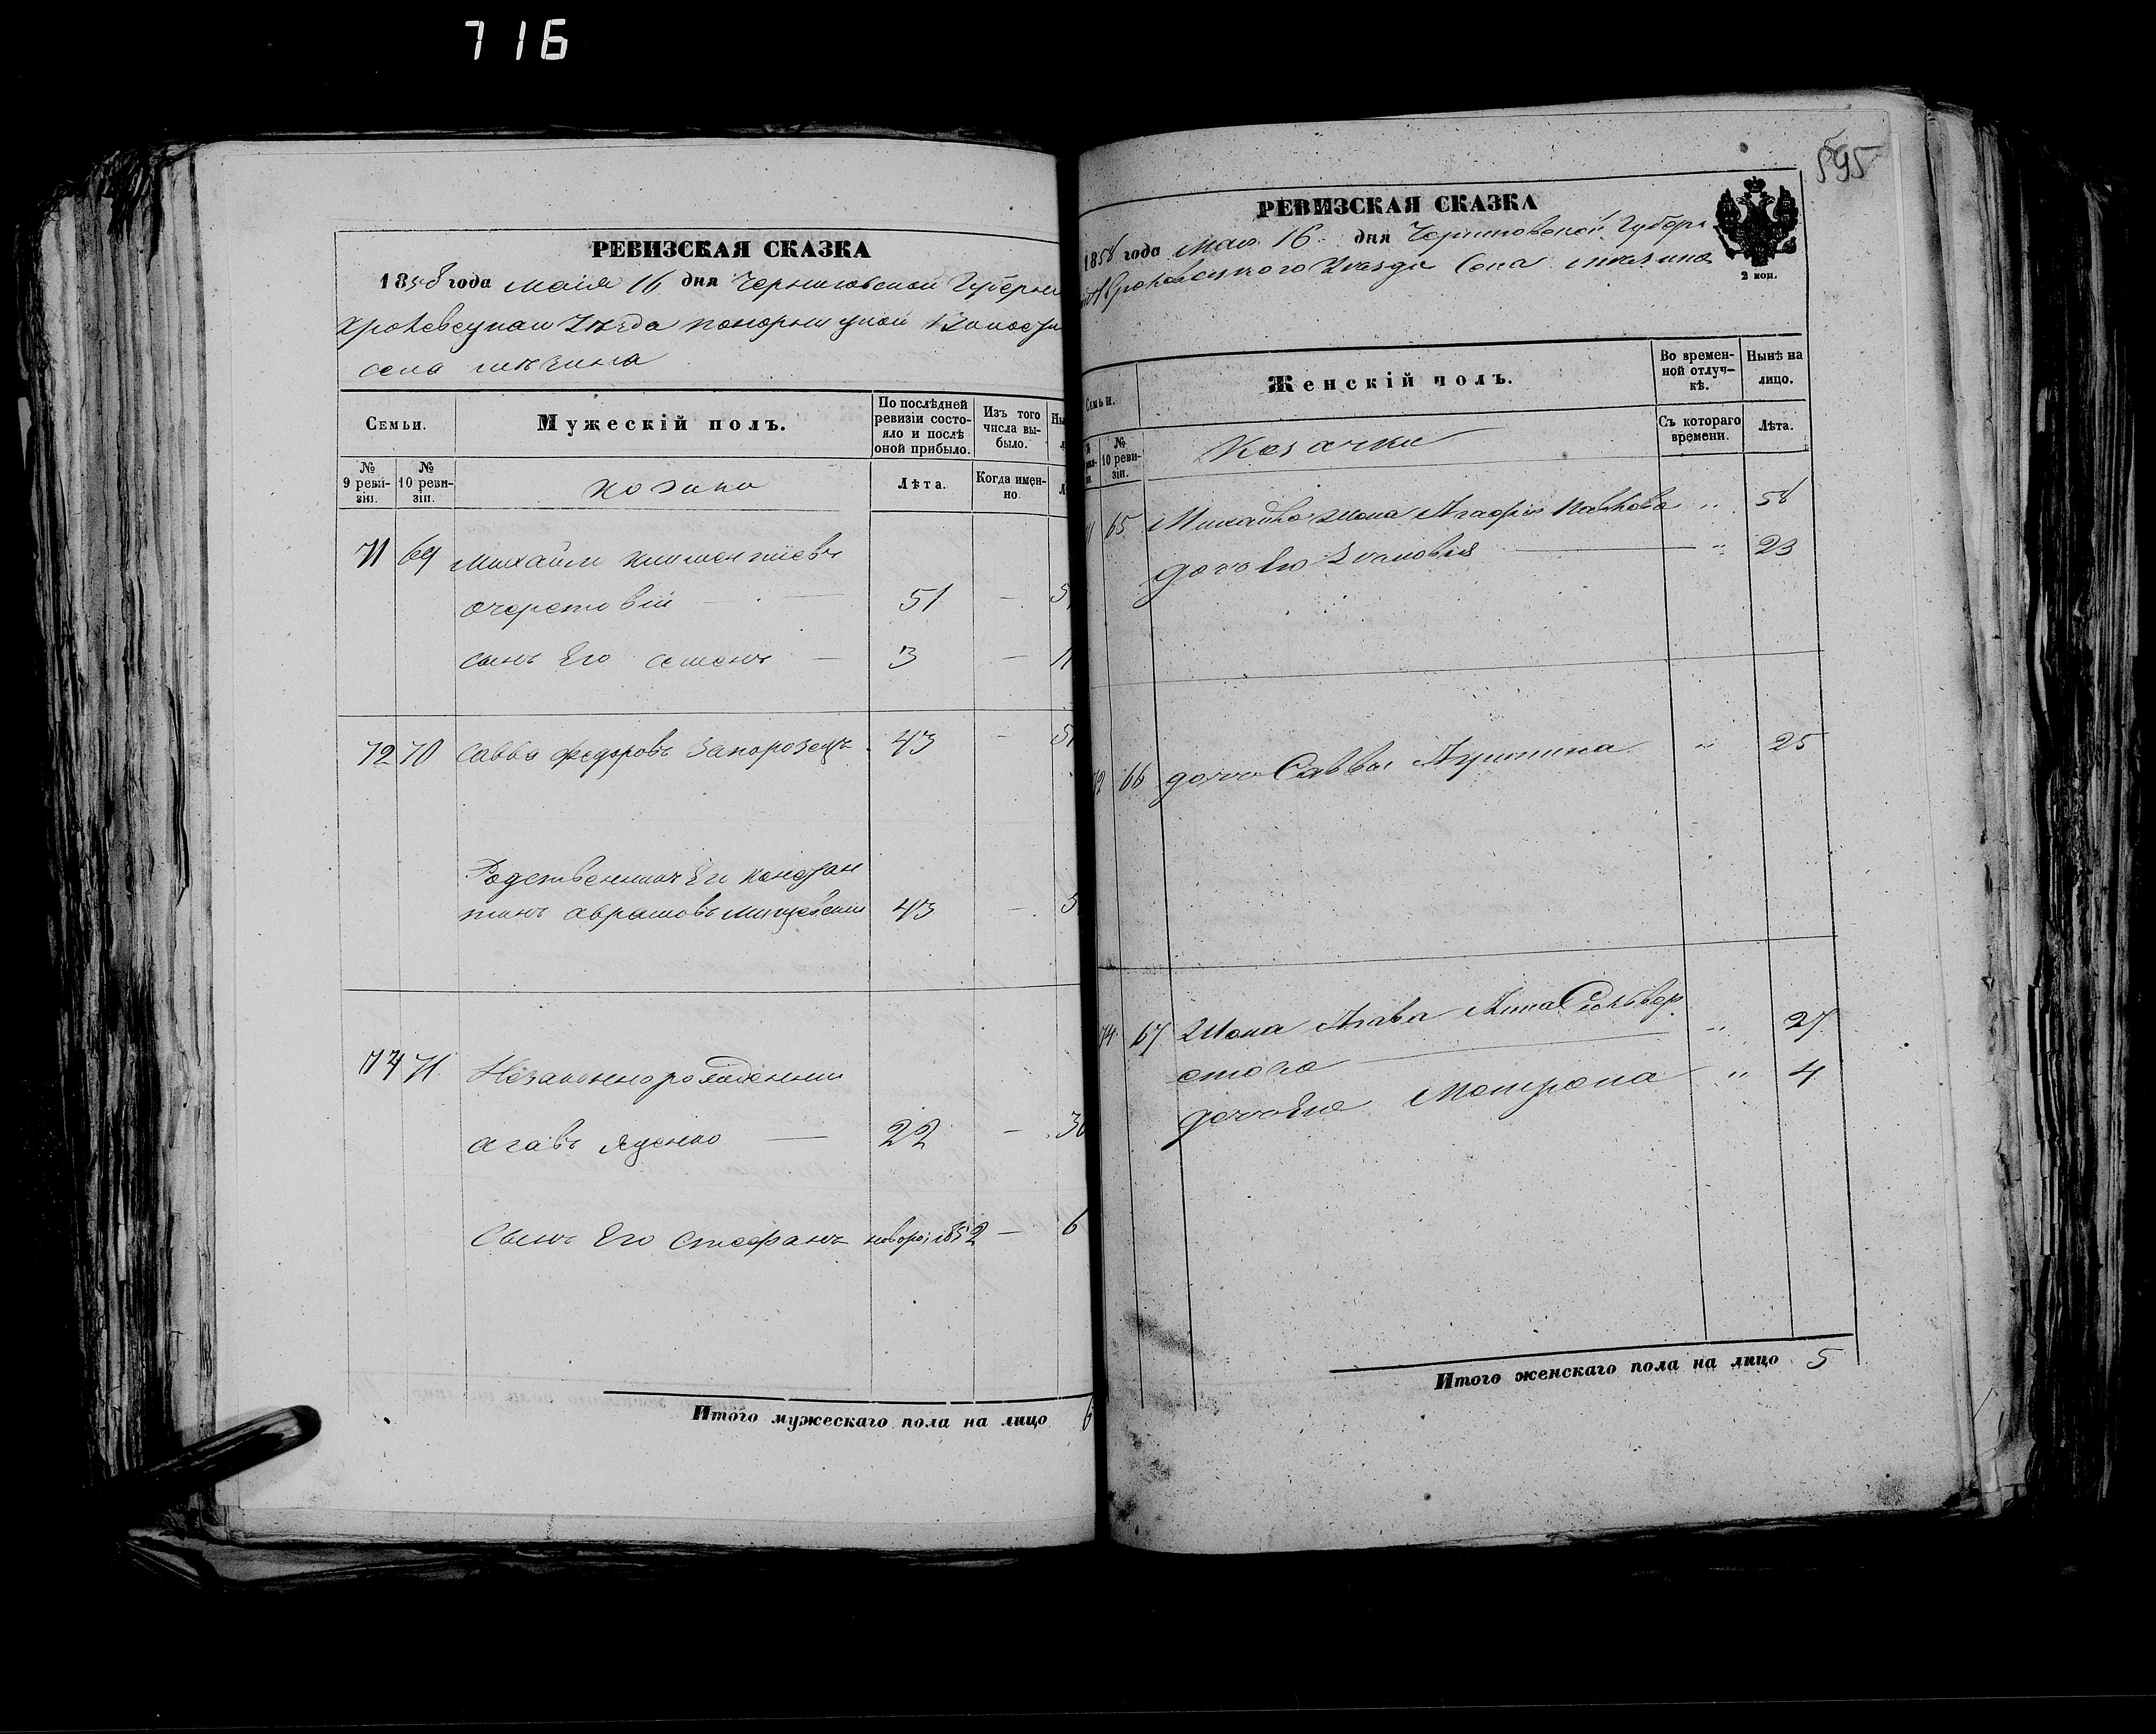 716
РЕВИЗСКАЯ СКАЗКА
1858 года маія 16 дня Черниговской Губерни
Кролевецкаго Уѣзда понорницкой Волости
села
Семьи.
Мужескій полъ.
По послѣдней ревизіи состояло и послѣ оной прибыло.
Изъ того числа выбыло.
№ 9 ревизіи.
№ 10 ревизіи.
козаки
Лѣта.
Когда именно.
71 69 Михайло Климентіевъ
очеретовій — 51 —
сынъ Его семенъ — 3 —
72 70 Савва Федоровъ Запорозецъ 43 —
Родственникъ Его Констан
тинъ аврамовъ 43 —
74 71 Незаконнорожденный
агавъ Яценко — 22 —
Сынъ Его Стефанъ новорож 1852 — 6
Итого мужескаго пола на лицо 6
595
РЕВИЗСКАЯ СКАЗКА
1858 года Мая 16 дня Черниговской Губерн
Кролевецкого Уезда Села
2 коп.
Семьи.
Женскій полъ.
Во временной отлучкѣ.
Нынѣ на лицо.
Съ котораго времени.
Лѣта.
№ 10 ревизіи.
Козачки
71 65 Михайла Жона Агафія Павлова " 58
дочь Его Зѣновія — " 23
72 66 дочь Саввы " 25
74 67 Жона Агавы Анна Селивер
стова — " 27
дочь Ево Мотрона " 4
Итого женскаго пола на лицо 5